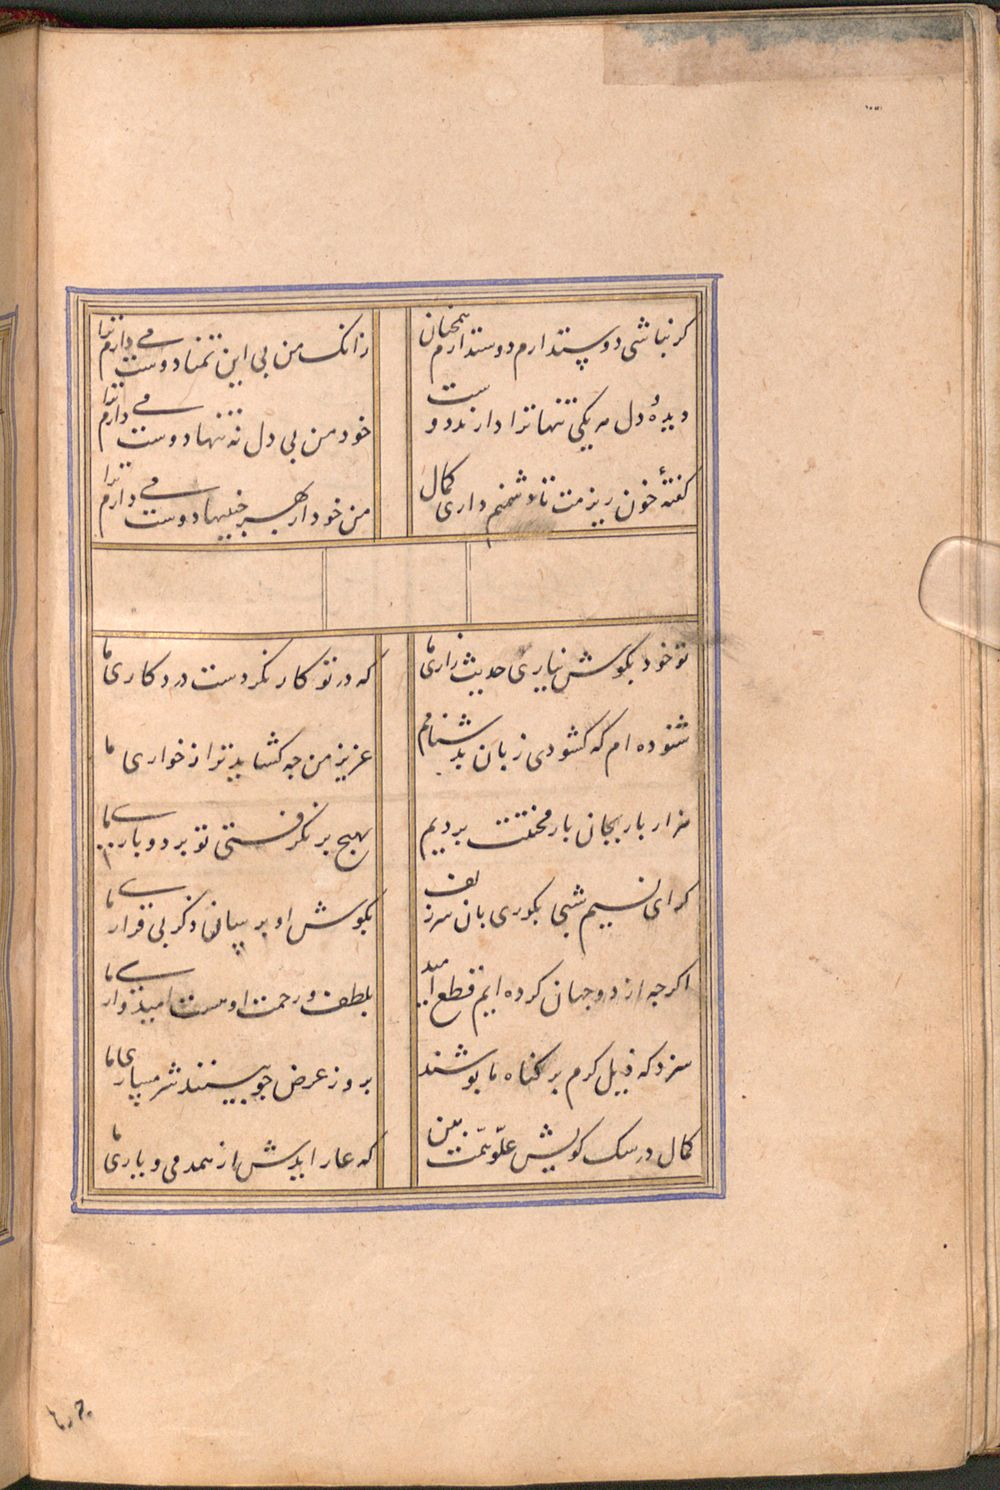 کر نباشی دوستدارم دوستدارم همچنان
زانک من بی این تمنا دوست می دارم ترا
دیدهٔ دل هر یکی تنها ترا دارند دوست
خود من بی دل نه تنها دوست می دارم ترا
کفتهٔ خون ریزمت تا دشمنم داری کمال
من خود از بهر جنینها دوست می دارم ترا
تو خود بکوش نیاری حدیث زاری ما
که در تو کار نکردست درد کاری ما
شنوده ام که کشودی زبان بدشنامم
عزیز من جه کشاید ترا ز خواری ما
هزار بار بجان بار محنتت بردیم
بهیج بر نکرفتی تو بردباری ما
کر ای نسیم شبی بکذری بان سر زلف
بکوش او برسانی ذکر بی قراری ما
اکرجه از دو جهان کرده ایم قطع امید
بلطف و رحمت اوست امیدواری ما
سزد که ذیل کرم بر کناه ما پوشند
بروز عرض جو بینند شرمساری ما
کمال در سک کویش علوّ همّت بین
که عار ایدش از همدمی و یاری ما